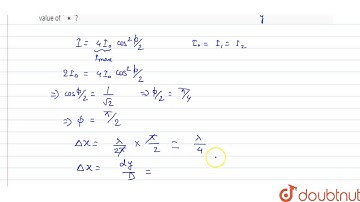 value of ' * '?
y
I = 4I₀ cos² ϕ/2    I₀ = I₁ = I₂
Imax
2I₀ = 4I₀ cos² ϕ/2
⇒ cos ϕ/2 = 1/√2 ⇒ ϕ/2 = π/4
⇒ ϕ = π/2
Δx = λ/2π × π/2 = λ/4
Δx = dy/D =
doubtnut